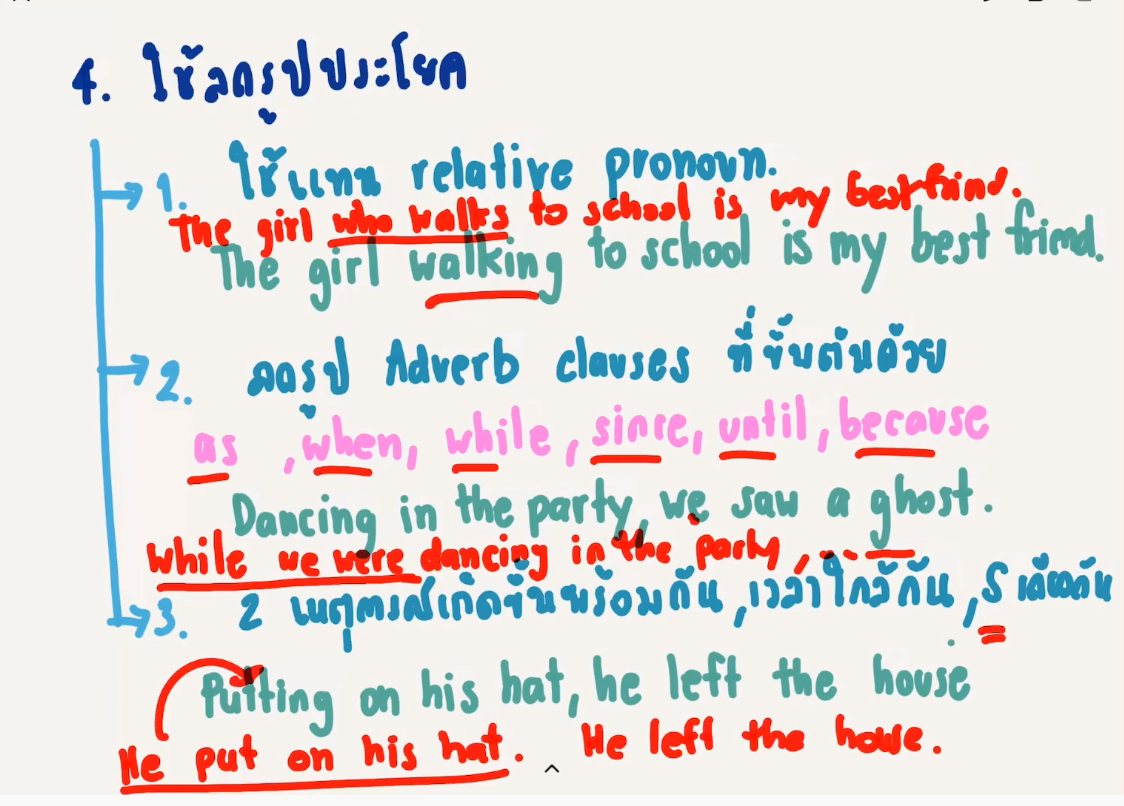 4. ใช้ลดรูปประโยค
1. ใช้แทน relative pronoun.
The girl who walks to school is my best frind.
The girl walking to school is my best friend.
2. ลดรูป Adverb clauses ที่ขึ้นต้นด้วย
as , when, while, since, until, because
Dancing in the party, we saw a ghost.
While we were dancing in the party, ...
3. 2 เหตุการณ์เกิดขึ้นพร้อมกัน, เวลาใกล้กัน, S เดียวกัน
Putting on his hat, he left the house
He put on his hat. He left the house.